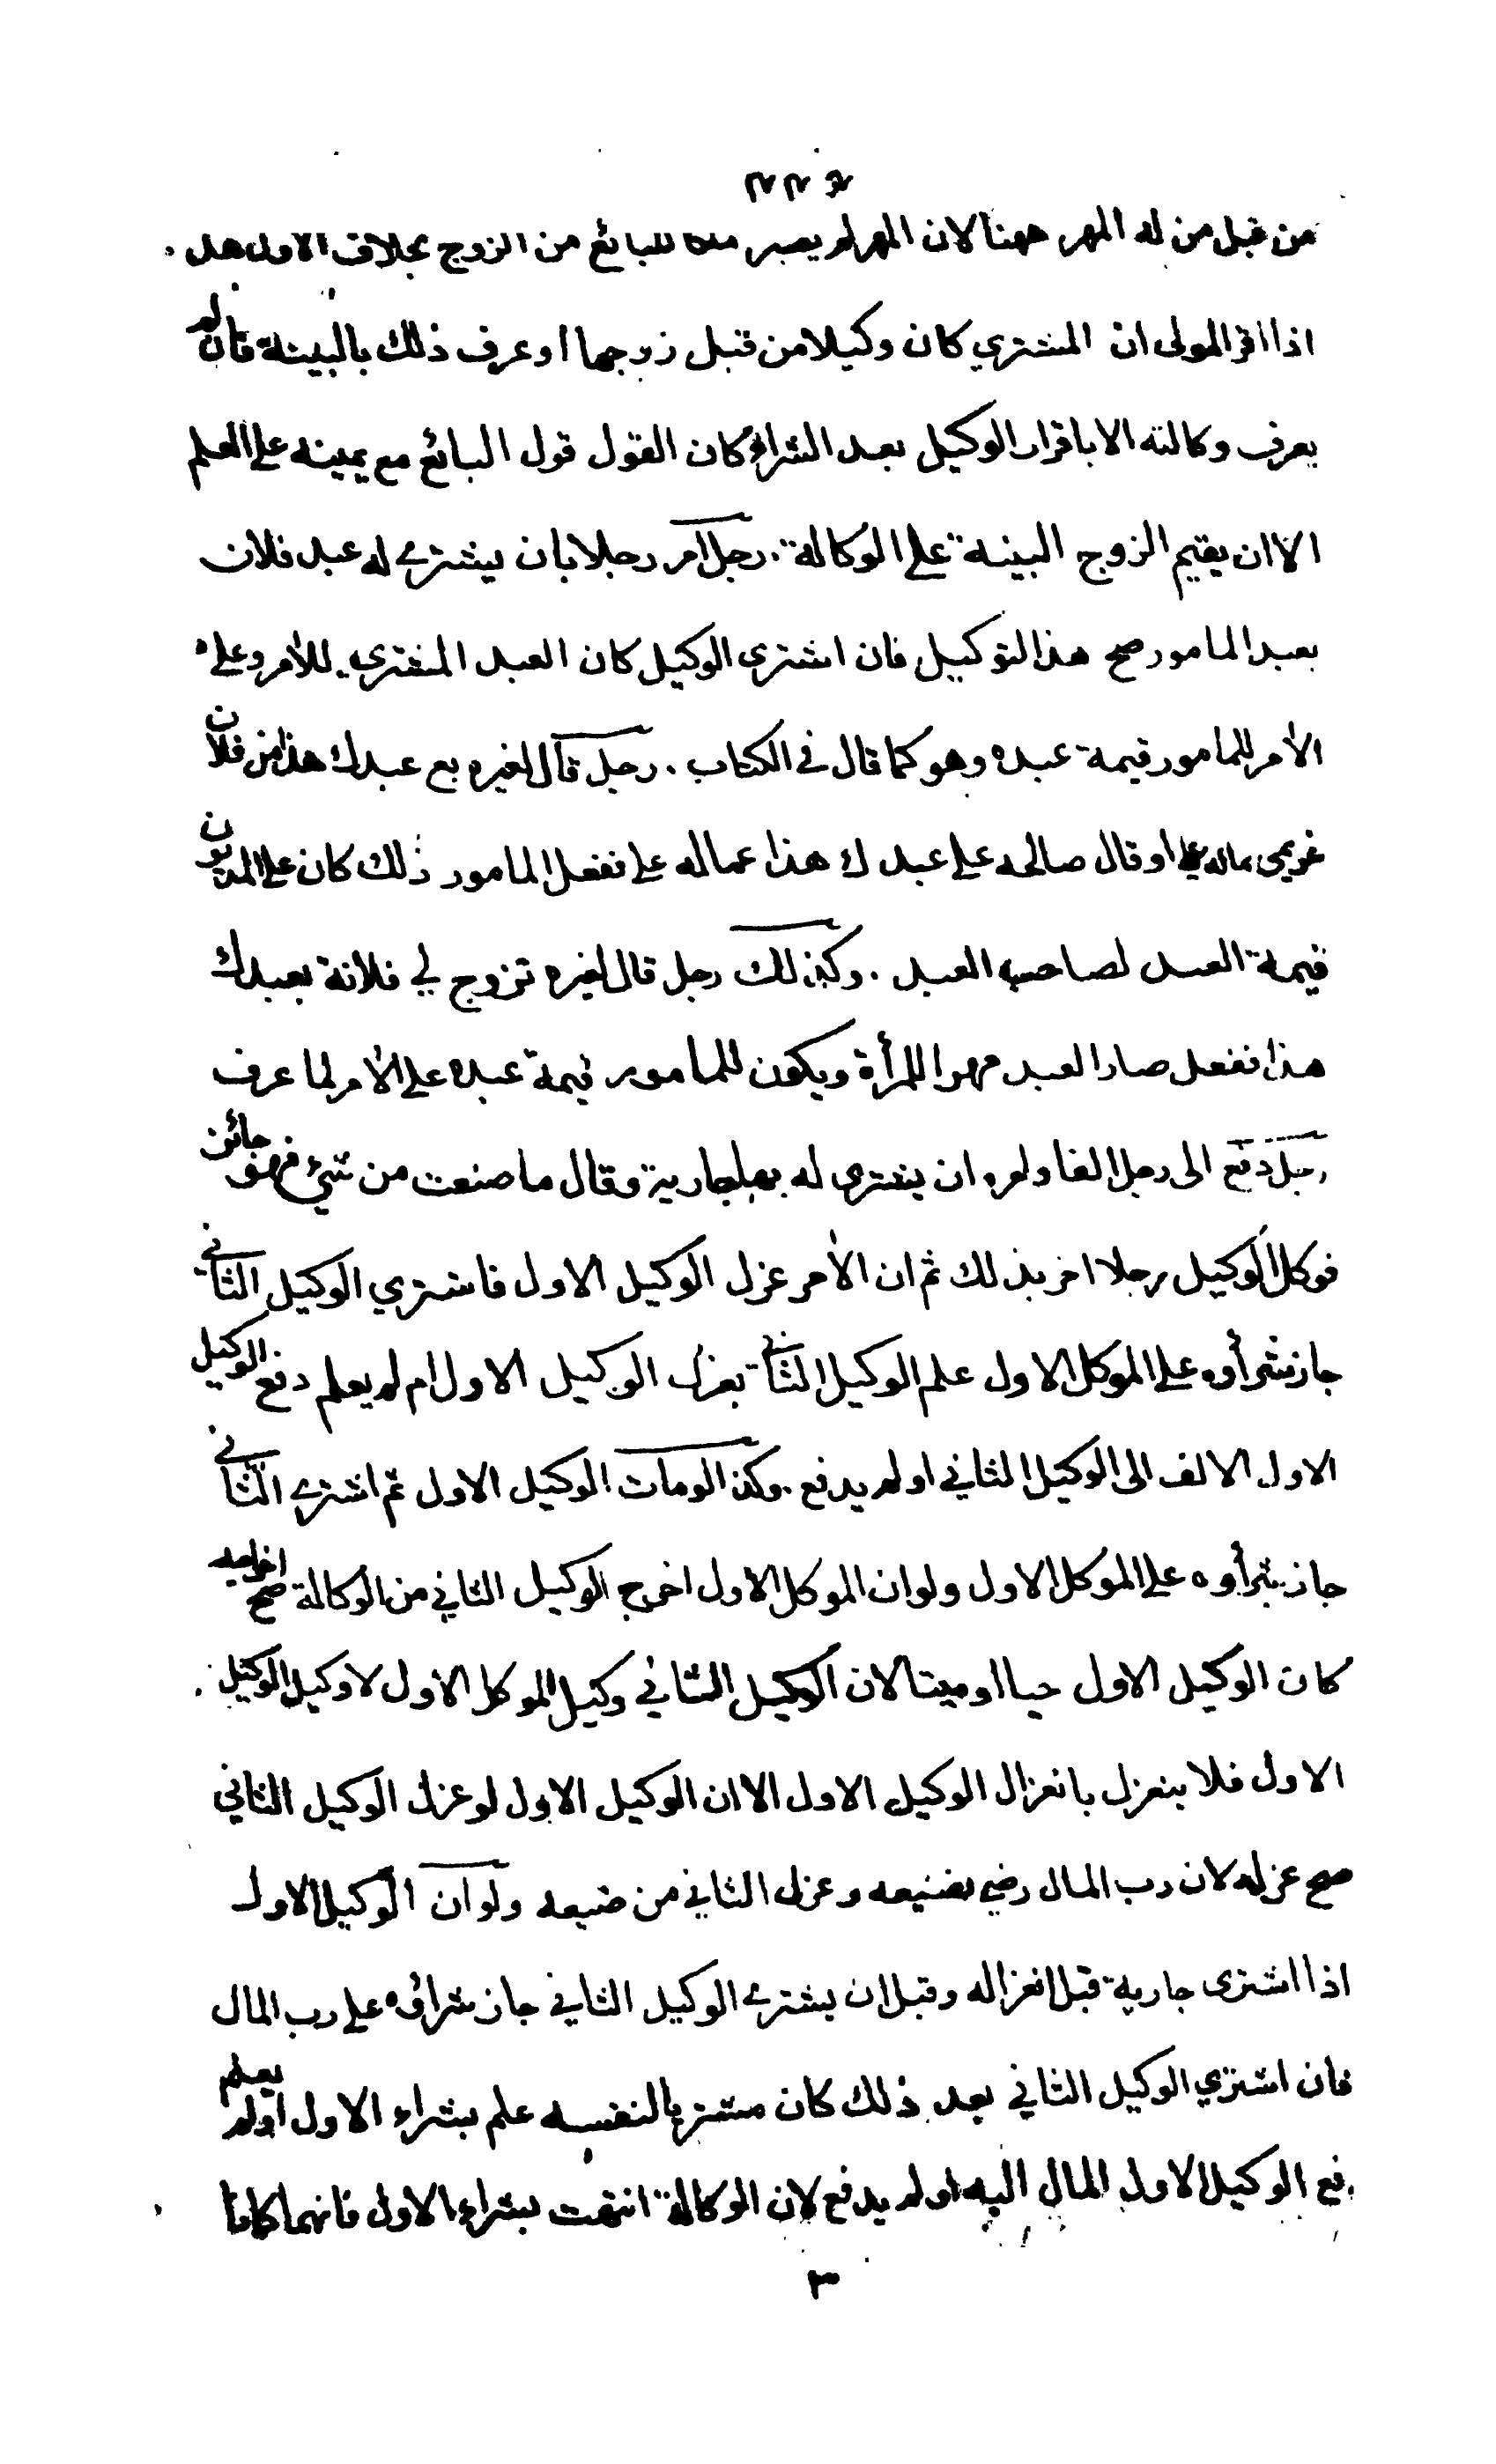 من قبل من له المهر ههنا لان المهر لم يصر ملكا للبائع من الزوج بخلاف الاول هل
اذا اقر المولى ان المشتري كان وكيلا من قبل زوجها او عرف ذلك بالبينة فان لم
يعرف وكالته الا باقرار الوكيل بعد الشراء كان القول قول البائع مع يمينه على العلم
الا ان يقيم الزوج البينة على الوكالة . رجل امر رجلا بان يشتري له عبد فلان
بعبد المامور صح هذا التوكيل فان اشترى الوكيل كان العبد المشترى للآمر وعلى
الآمر للمامور قيمة عبده وهو كما قال في الكتاب . رجل قال لغيره بع عبدك هذا من فلان
غريمي بماله علي او قال صالحه على عبدك هذا عماله علي ففعل المامور ذلك كان على المديون
قيمة العبد لصاحب العبد . وكذلك رجل قال لغيره تزوج لي فلانة بعبدك
هذا ففعل صار العبد مهرا للمرأة ويكون للمامور قيمة عبده على الآمر لما عرف
رجل دفع الى رجل الفا وامره ان يشترى له بها جارية وقال ما صنعت من شيء فهو جائز
فوكل الوكيل رجلا اخر بذلك ثم ان الآمر عزل الوكيل الاول فاشتري الوكيل الثاني
جاز شرأوه على الموكل الاول علم الوكيل الثاني بعزل الوكيل الاول ام لم يعلم دفع الوكيل
الاول الالف الى الوكيل الثاني او لم يدفع . وكذا لو مات الوكيل الاول ثم اشتري الثاني
جاز شرأوه على الموكل الاول ولو ان الموكل الاول اخرج الوكيل الثاني من الوكالة صح اخراجه
كان الوكيل الاول حيا او ميتا لان الوكيل الثاني وكيل الموكل الاول لا وكيل الوكيل
الاول فلا ينعزل بانعزال الوكيل الاول الا ان الوكيل الاول لو عزل الوكيل الثاني
صح عزله لان رب المال رضي بصنيعه وعزل الثاني من صنيعه ولو ان الوكيل الاول
اذا اشترى جارية قبل انعزاله وقبل ان يشتري الوكيل الثاني جاز شراؤه على رب المال
فان اشتري الوكيل الثاني بعد ذلك كان مشتريا لنفسه علم بشراء الاول او لم يعلم
دفع الوكيل الاول المال اليه او لم يدفع لان الوكالة انتهت بشراء الاول فانهما كانا
٣